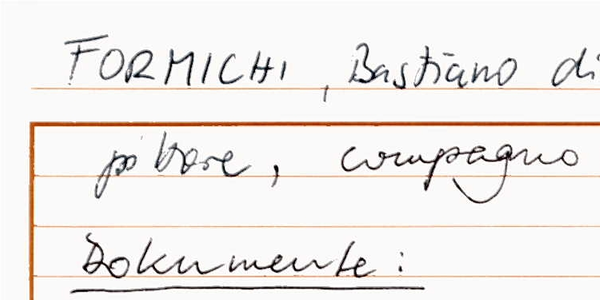 FORMICHI, Bastiano di
pittore, compagno
Dokumente: